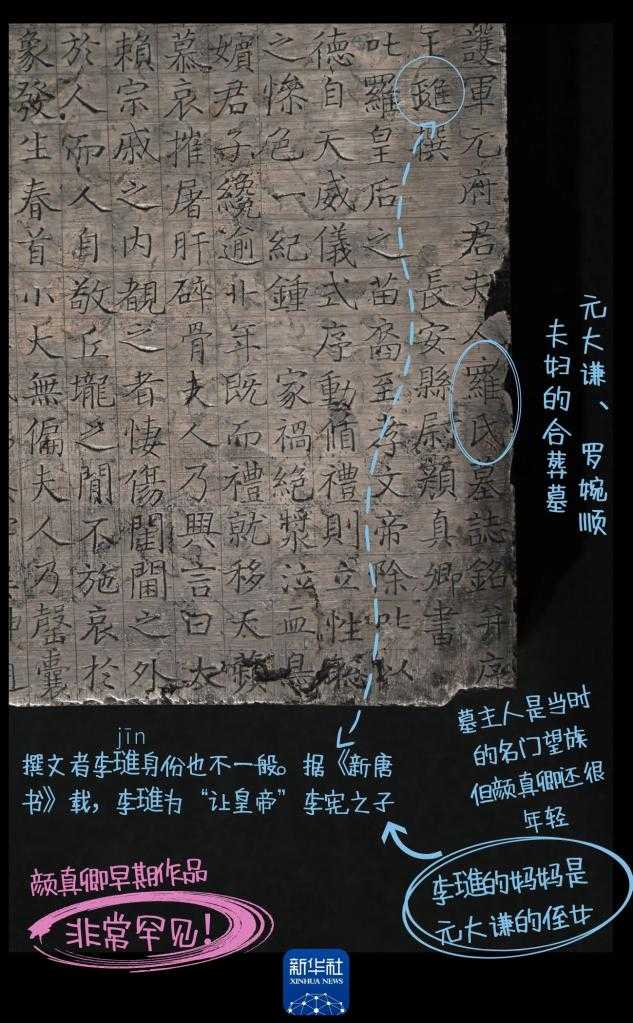 護軍元府君夫人羅氏墓誌銘并序
王璡撰 長安縣尉顏真卿書
叱羅皇后之苗裔至孝文帝除叱以
德自天威儀式序動循禮則立性聡
之慘色一紀鍾 家禍絕漿泣血
嬪君子纔逾丱年既而禮就移天蘋
慕哀摧屠肝碎骨夫人乃興言曰大
賴宗戚之內覩之者悽傷閨閫之外
於人而人自敬丘壠之間不施哀於
象發生春首小大無偏夫人乃罄囊
元大谦、罗婉顺
夫妇的合葬墓
jīn
撰文者李璡身份也不一般。据《新唐
书》载，李璡为“让皇帝”李宪之子
墓主人是当时
的名门望族
但颜真卿还很
年轻
李璡的妈妈是
元大谦的侄女
颜真卿早期作品
非常罕见！
新华社
XINHUA NEWS